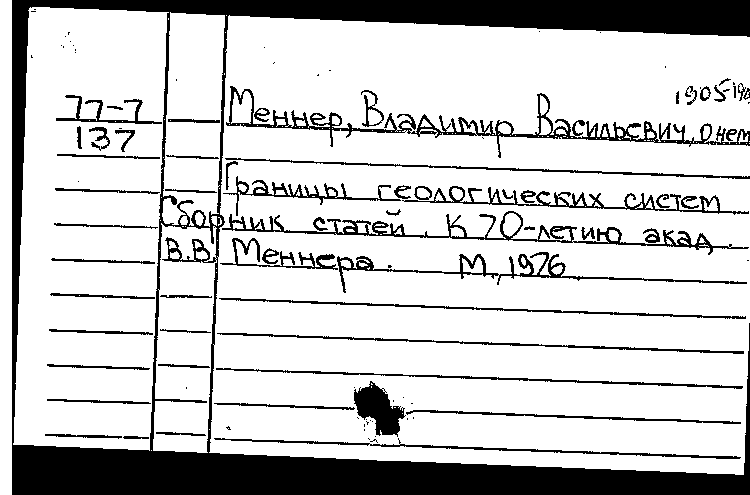 1905-
77-7 Меннер, Владимир Васильевич, о нем
137
Границы геологических систем
Сборник статей. К 70-летию акад.
В.В. Меннера. М., 1976.